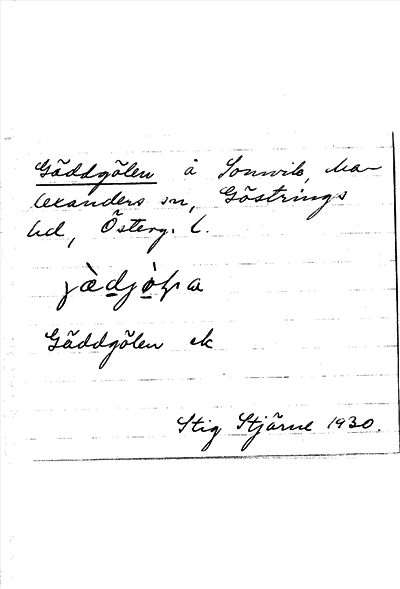 Gäddgölen å Sonvik, Ma-
lexanders sn, Göstrings
hd, Österg. l.
Gäddgölen ek
Stig Stjärne 1930.